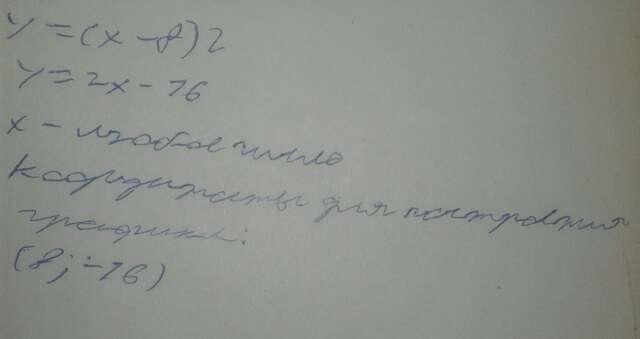 y = (x - 8) 2
y = 2x - 16
x - любое число
Координаты для построения
графика:
(8; -16)